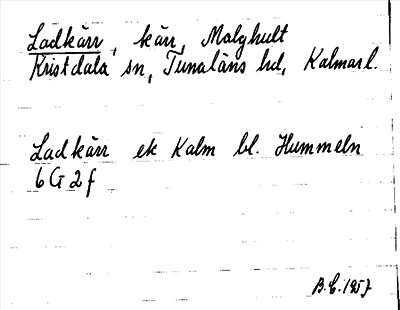 Ladkärr, kärr, Malghult
Kristdala sn, Tunaläns hd, Kalmar l.
Ladkärr ek Kalm bl. Hummeln
6 G 2 f
B.E. 1957